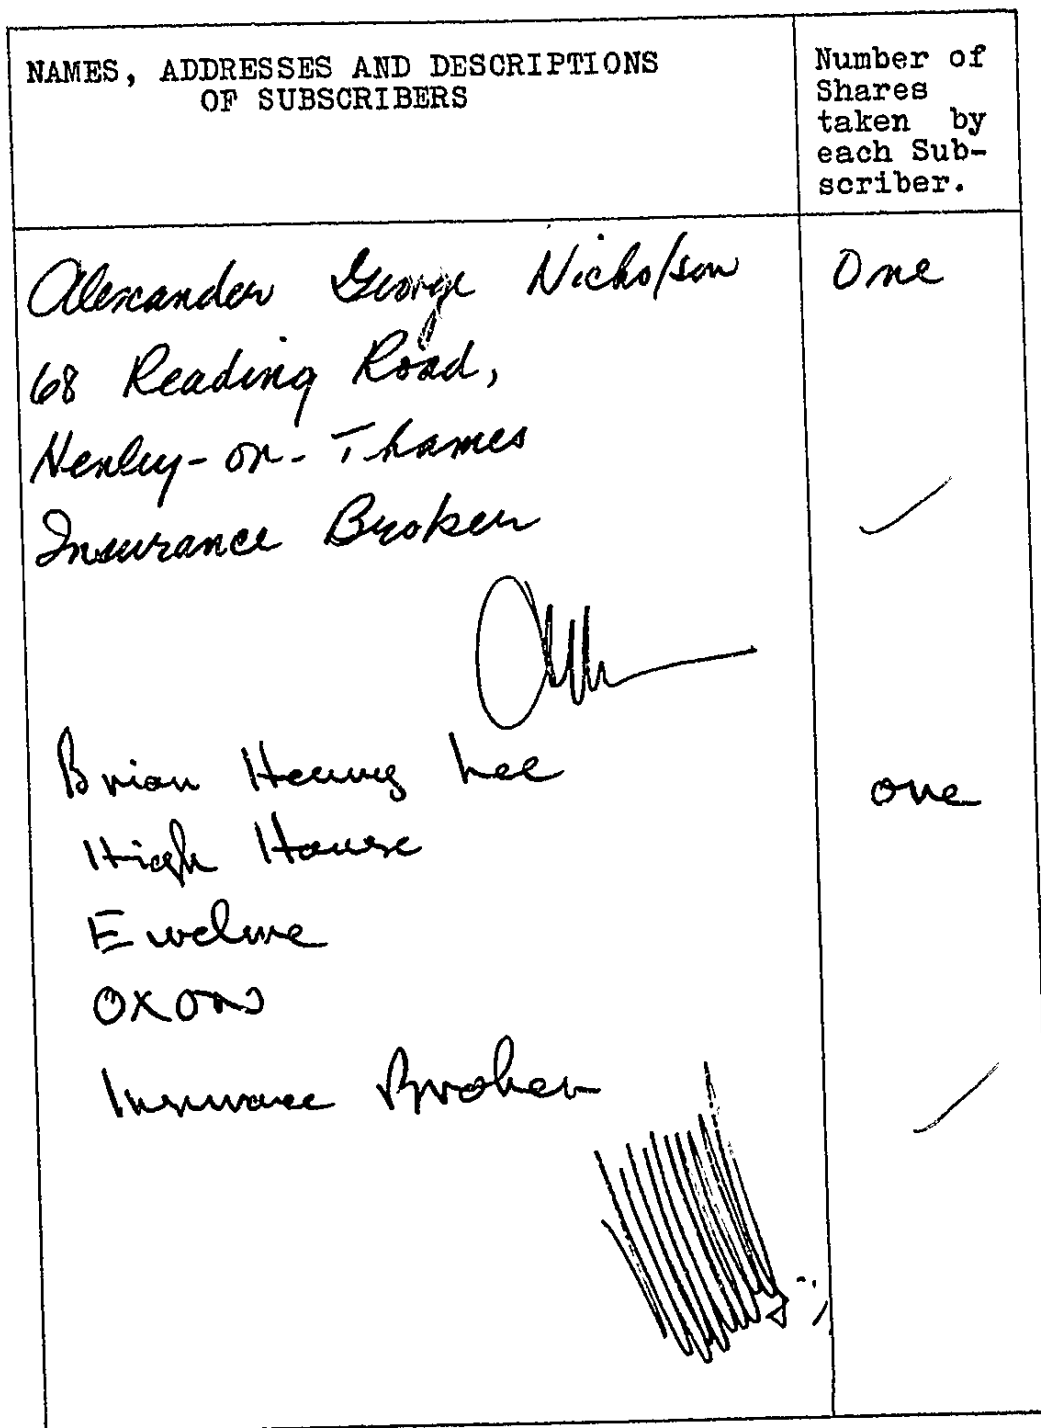 NAMES, ADDRESSES AND DESCRIPTIONS
OF SUBSCRIBERS
Number of
Shares
taken by
each Sub-
scriber.
Alexander George Nicholson One
68 Reading Road,
Henley-on-Thames
Insurance Broker
Brian Henry Lee one
High House
Ewelme
OXON
Insurance Broker